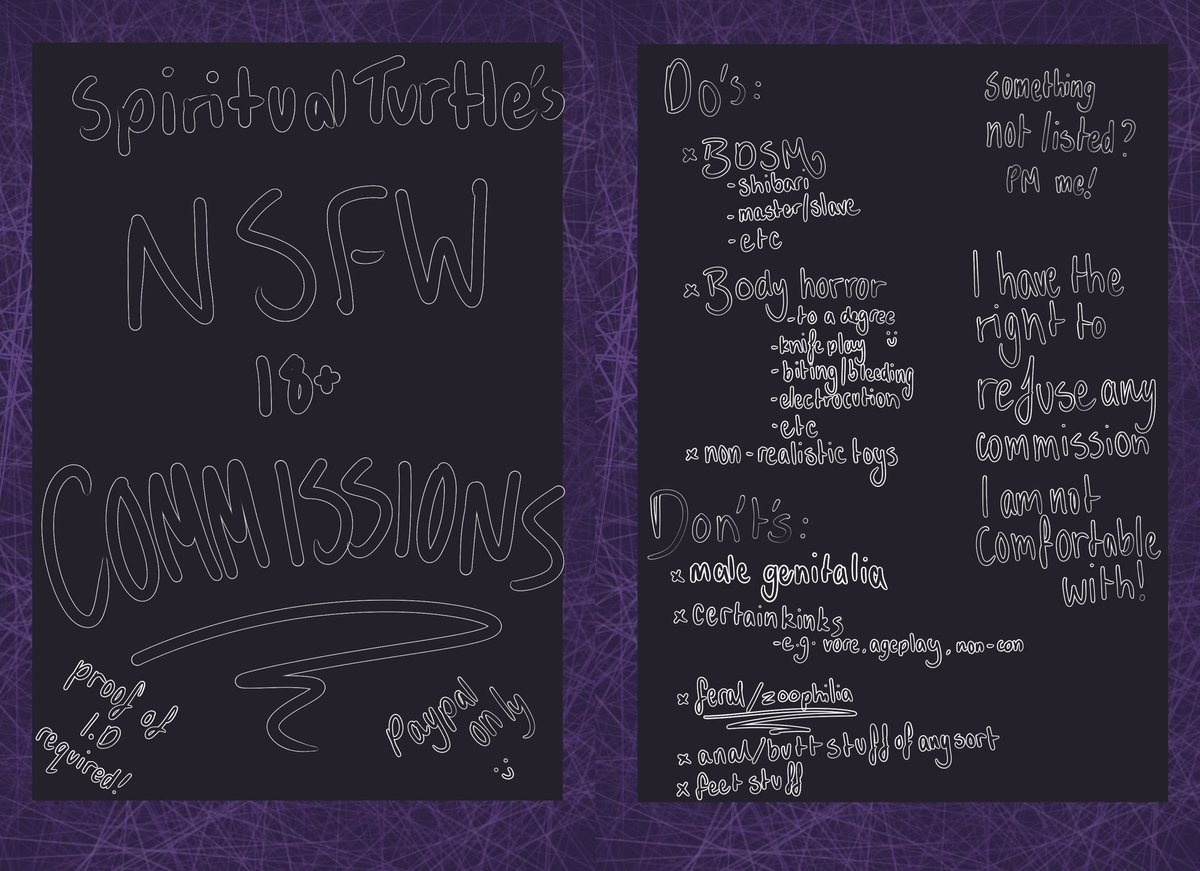 Spiritual Turtle's
NSFW
18+
COMMISSIONS
proof of
I.D
required!
Paypal
only
:)
Do's:
x BDSM
- shibari
- master/slave
- etc
x Body horror
- to a degree
- knife play :)
- biting/bleeding
- electrocution
- etc
x non-realistic toys
Don't's:
x male genitalia
x certain kinks
- e.g. vore, ageplay, non-con
x feral/zoophilia
x anal/butt stuff of any sort
x feet stuff
something
not listed?
PM me!
I have the
right to
refuse any
commission
I am not
comfortable
with!